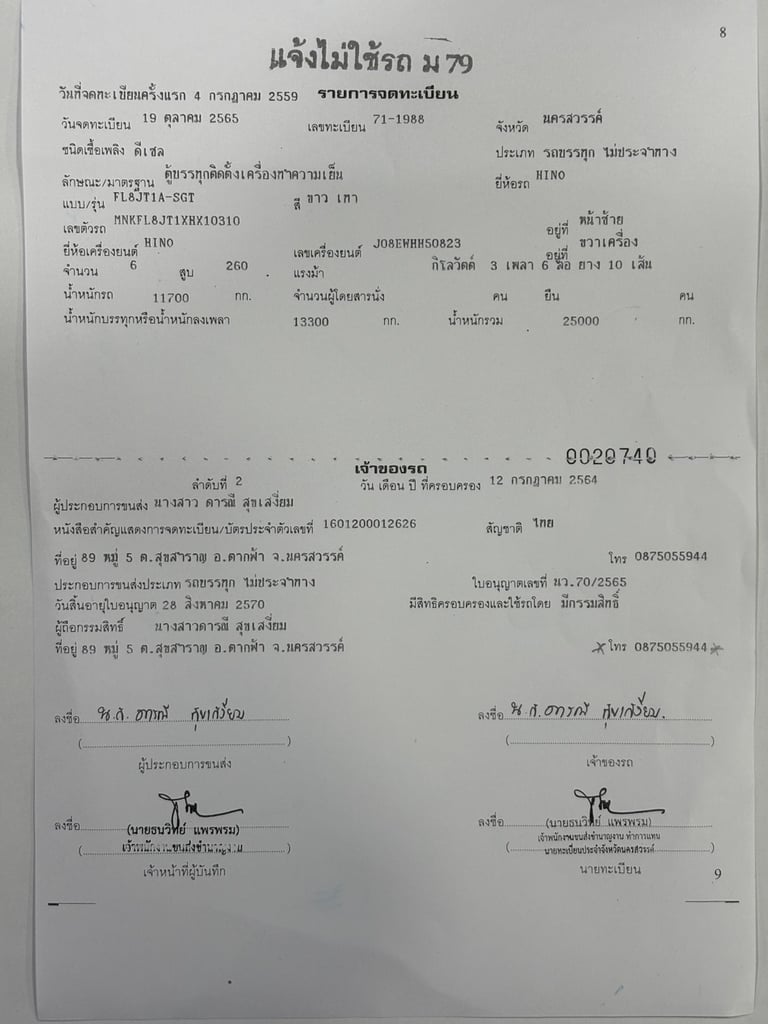 8
แจ้งไม่ใช้รถ ม 79
วันที่จดทะเบียนครั้งแรก 4 กรกฎาคม 2559 รายการจดทะเบียน
วันจดทะเบียน 19 ตุลาคม 2565 เลขทะเบียน 71-1988 จังหวัด นครสวรรค์
ชนิดเชื้อเพลิง ดีเซล ประเภท รถบรรทุก ไม่ประจำทาง
ลักษณะ/มาตรฐาน ตู้บรรทุกติดตั้งเครื่องทำความเย็น ยี่ห้อรถ HINO
แบบ/รุ่น FL8JT1A-SGT สี ขาว เทา
เลขตัวรถ MNKFL8JT1XHX10310 อยู่ที่ หน้าซ้าย
ยี่ห้อเครื่องยนต์ HINO เลขเครื่องยนต์ J08EWHH50823 อยู่ที่ ขวาเครื่อง
จำนวน 6 สูบ 260 แรงม้า กิโลวัตต์ 3 เพลา 6 ล้อ ยาง 10 เส้น
น้ำหนักรถ 11700 กก. จำนวนผู้โดยสารนั่ง คน ยืน คน
น้ำหนักบรรทุกหรือน้ำหนักลงเพลา 13300 กก. น้ำหนักรวม 25000 กก.
0020740
เจ้าของรถ
ลำดับที่ 2 วัน เดือน ปี ที่ครอบครอง 12 กรกฎาคม 2564
ผู้ประกอบการขนส่ง นางสาว ดารณี สุขเสงี่ยม
หนังสือสำคัญแสดงการจดทะเบียน/บัตรประจำตัวเลขที่ 1601200012626 สัญชาติ ไทย
ที่อยู่ 89 หมู่ 5 ต.สุขสำราญ อ.ตากฟ้า จ.นครสวรรค์ โทร 0875055944
ประกอบการขนส่งประเภท รถบรรทุก ไม่ประจำทาง ใบอนุญาตเลขที่ นว.70/2565
วันสิ้นอายุใบอนุญาต 28 สิงหาคม 2570 มีสิทธิครอบครองและใช้รถโดย มีกรรมสิทธิ์
ผู้ถือกรรมสิทธิ์ นางสาวดารณี สุขเสงี่ยม
ที่อยู่ 89 หมู่ 5 ต.สุขสำราญ อ.ตากฟ้า จ.นครสวรรค์ โทร 0875055944
ลงชื่อ น.ส. ดารณี สุขเสงี่ยม ลงชื่อ น.ส. ดารณี สุขเสงี่ยม.
(    ) (    )
ผู้ประกอบการขนส่ง เจ้าของรถ
ลงชื่อ ลงชื่อ
(นายธนวิทย์ แพรพรม) (นายธนวิทย์ แพรพรม)
เจ้าพนักงานขนส่งชำนาญงาน เจ้าพนักงานขนส่งชำนาญงาน ทำการแทน
นายทะเบียนประจำจังหวัดนครสวรรค์
เจ้าหน้าที่ผู้บันทึก นายทะเบียน
9